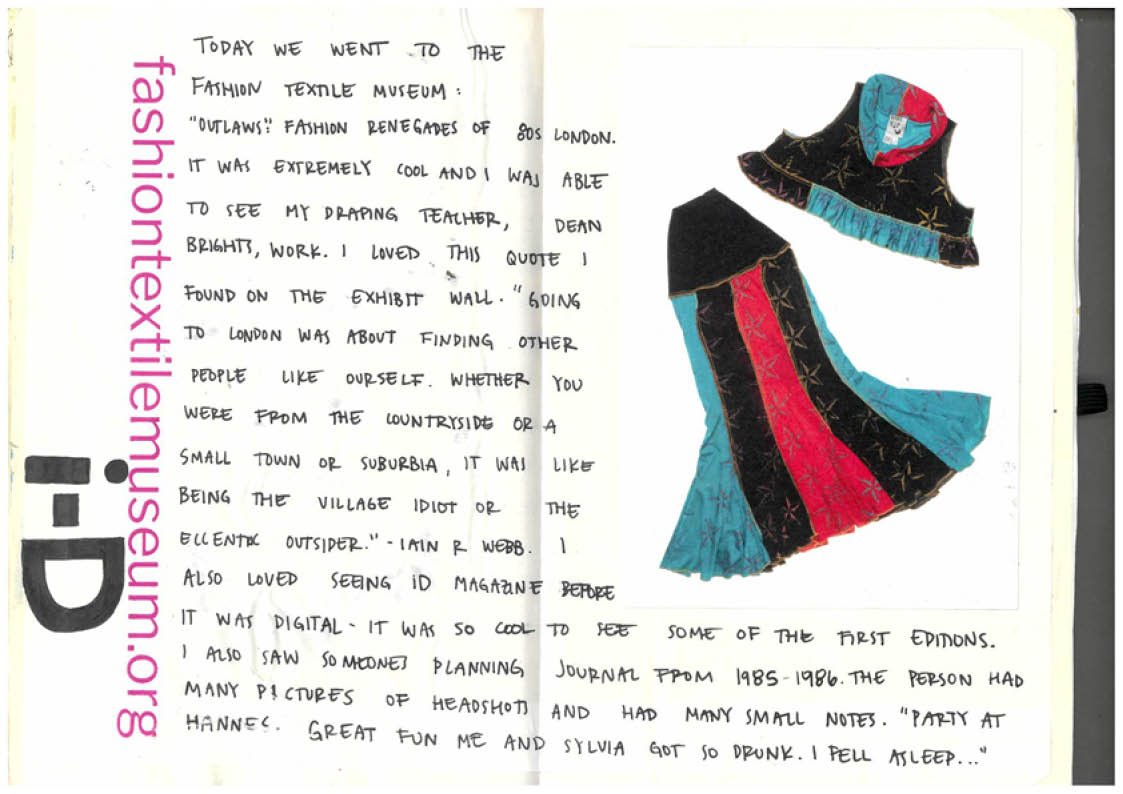 fashiontextilemuseum.org
i-D
TODAY WE WENT TO THE
FASHION TEXTILE MUSEUM:
"OUTLAWS": FASHION RENEGADES OF 80S LONDON.
IT WAS EXTREMELY COOL AND I WAS ABLE
TO SEE MY DRAPING TEACHER, DEAN
BRIGHTS, WORK. I LOVED THIS QUOTE I
FOUND ON THE EXHIBIT WALL. "GOING
TO LONDON WAS ABOUT FINDING OTHER
PEOPLE LIKE OURSELF. WHETHER YOU
WERE FROM THE COUNTRYSIDE OR A
SMALL TOWN OR SUBURBIA, IT WAS LIKE
BEING THE VILLAGE IDIOT OR THE
ECCENTIC OUTSIDER." - IAIN R WEBB. I
ALSO LOVED SEEING ID MAGAZINE BEFORE
IT WAS DIGITAL - IT WAS SO COOL TO SEE SOME OF THE FIRST EDITIONS.
I ALSO SAW SOMEONES PLANNING JOURNAL FROM 1985-1986. THE PERSON HAD
MANY PICTURES OF HEADSHOTS AND HAD MANY SMALL NOTES. "PARTY AT
HANNES. GREAT FUN ME AND SYLVIA GOT SO DRUNK. I FELL ASLEEP..."